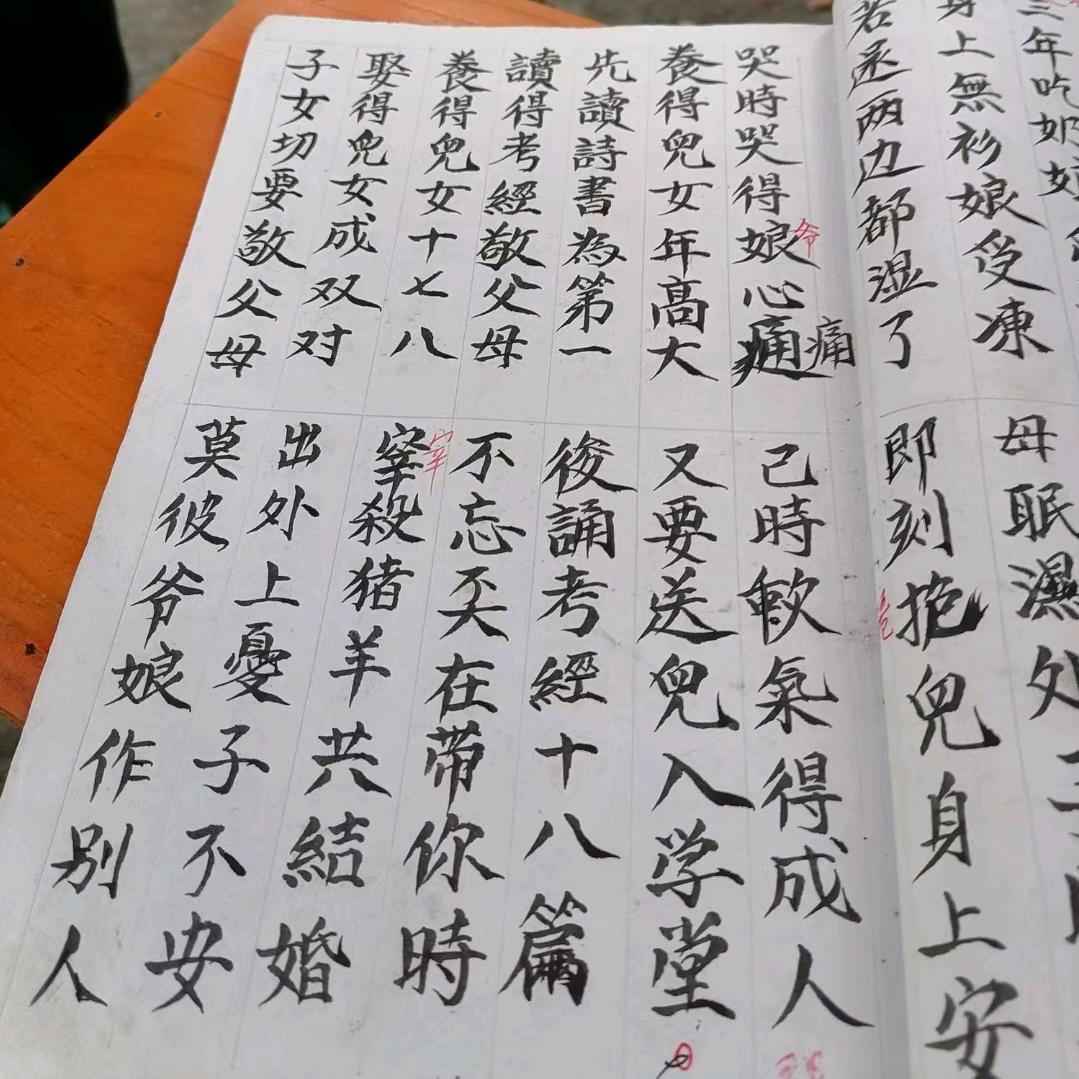 三年吃奶娘
母眠濕处
身上無衫娘受凍
若丞两边都湿了
即刻抱兒身上安
哭時哭得娘心痛
爷
痛
己時軟氣得成人
養得兒女年高大
又要送兒入学堂
先讀詩書為第一
後誦考經十八篇
讀得考經敬父母
不忘丟在带你時
養得兒女十七八
宰殺猪羊共結婚
宰
娶得兒女成双对
出外上憂子不安
子女切要敬父母
莫彼爷娘作别人